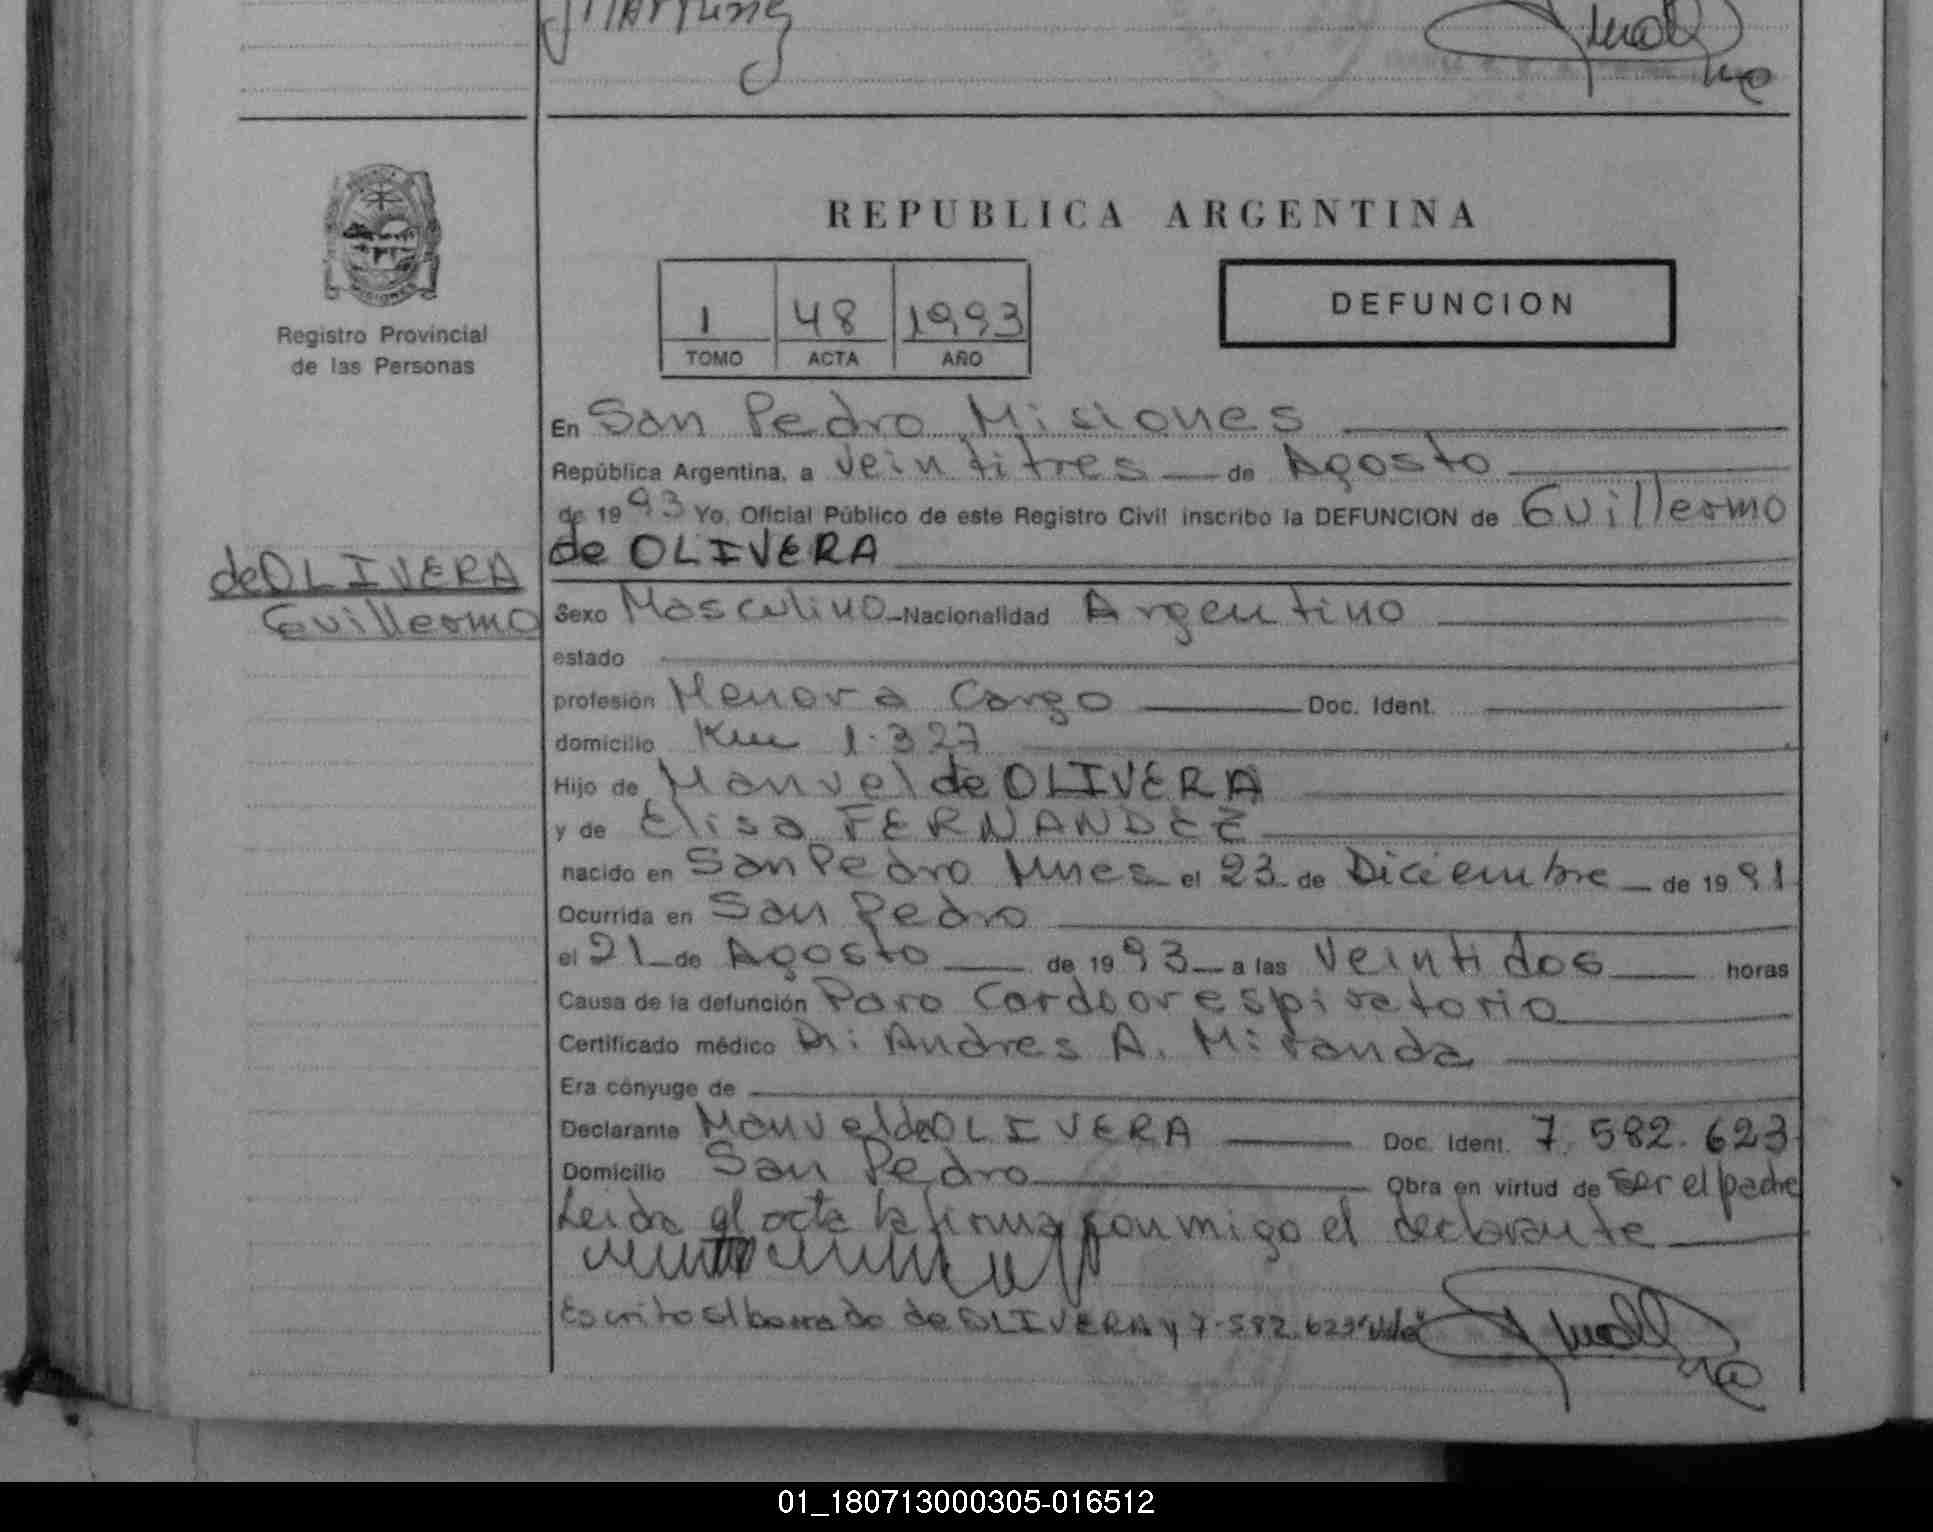 REPUBLICA ARGENTINA
1 48 1993
TOMO ACTA AÑO
DEFUNCION
Registro Provincial
de las Personas
En San Pedro Misiones
República Argentina, a veintitres de Agosto
de 1993 Yo, Oficial Público de este Registro Civil inscribo la DEFUNCION de Guillermo
de OLIVERA
de OLIVERA
Guillermo
Sexo Masculino Nacionalidad Argentino
estado
profesión Menor a Cargo Doc. Ident.
domicilio Km 1.327
Hijo de Manuel de OLIVERA
y de Elisa FERNANDEZ
nacido en San Pedro Mnes el 23 de Diciembre de 1991
Ocurrida en San Pedro
el 21 de Agosto de 1993 a las veintidos horas
Causa de la defunción Paro Cardoorespiratorio
Certificado médico Dr: Andres A. Miranda
Era cónyuge de
Declarante Manuel de OLIVERA Doc. Ident. 7.582.623
Domicilio San Pedro Obra en virtud de ser el padre
Leida el acta la firma conmigo el declarante
Escrito s/borrado de OLIVERA y 7.582.623 "Vale"
01_180713000305-016512